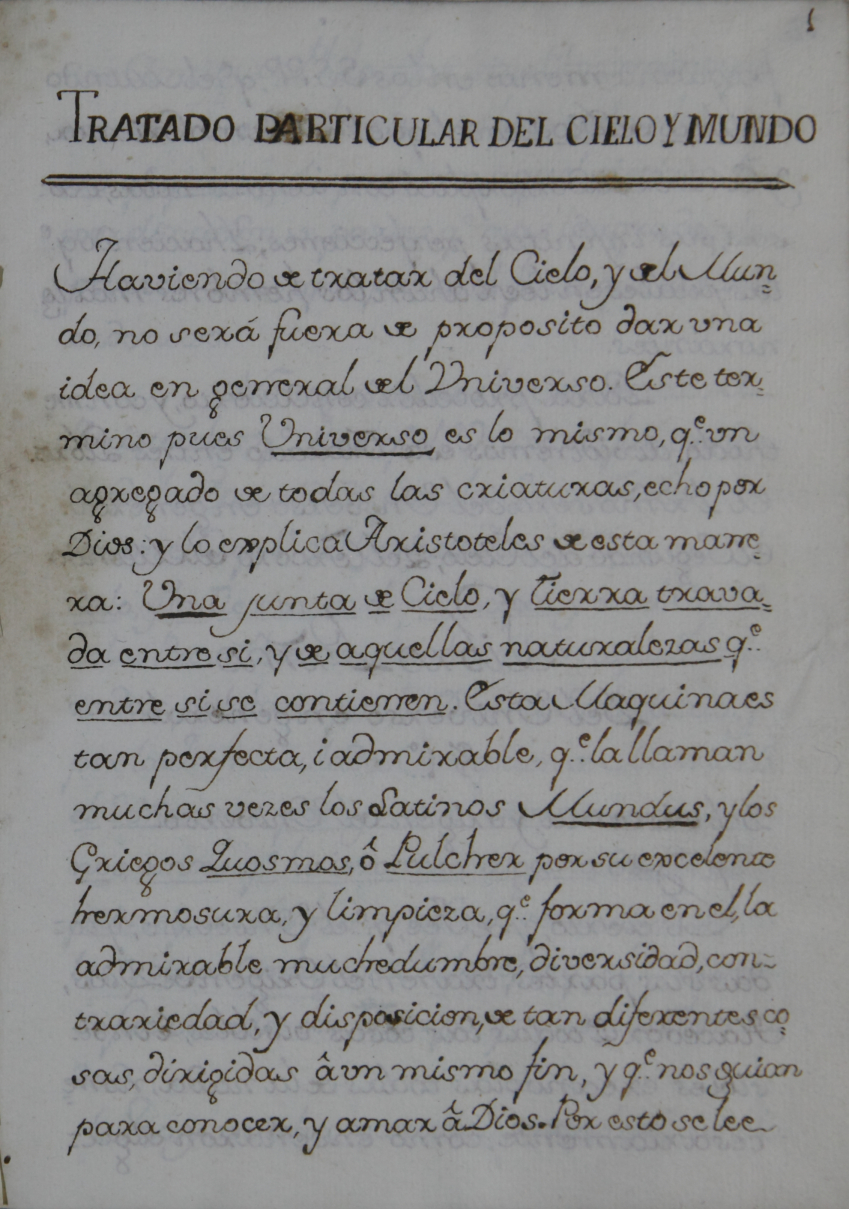 1
TRATADO PARTICULAR DEL CIELO Y MUNDO
Haviendo de tratar del Cielo, y del Mun-
do, no será fuera de proposito dar vna
idea en general del Vniverso. Este ter-
mino pues Universo es lo mismo, q.e vn
agregado de todas las criaturas, echo por
Dios: y lo explica Aristoteles de esta mane-
ra: Una junta de Cielo, y tierra trava-
da entre si, y de aquellas naturalezas q.e
entre si se contienen. Esta Maquina es
tan perfecta, i admirable, q.e la llaman
muchas vezes los Latinos Mundus, y los
Griegos Quosmos, ô Pulcher por su excelente
hermosura, y limpieza, q.e forma en el, la
admirable muchedumbre, diversidad, con-
trariedad, y disposicion, de tan diferentes co-
sas, dirigidas â vn mismo fin, y q.e nos guian
para conocer, y amar â Dios. Por esto se lee